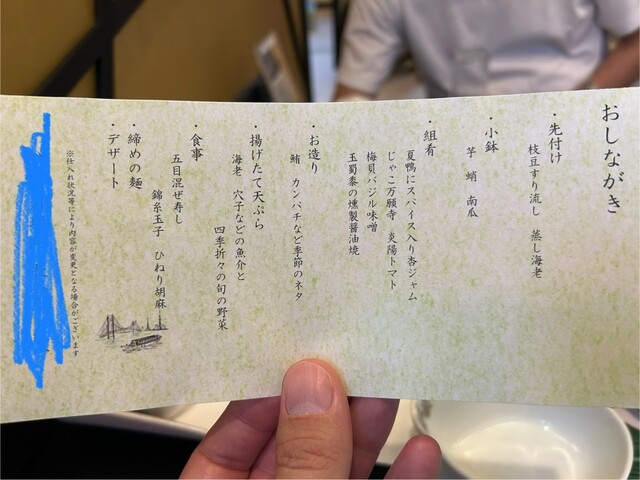 おしながき
・先付け
枝豆すり流し 蒸し海老
・小鉢
芋 蛸 南瓜
・組肴
夏鴨にスパイス入り杏ジャム
じゃこ万願寺 炎陽トマト
梅貝バジル味噌
玉蜀黍の燻製醤油焼
・お造り
鮪 カンパチなど季節のネタ
・揚げたて天ぷら
海老 穴子などの魚介と
四季折々の旬の野菜
・食事
五目混ぜ寿し
錦糸玉子 ひねり胡麻
・締めの麺
・デザート
※仕入れ状況等により内容が変更となる場合がございます